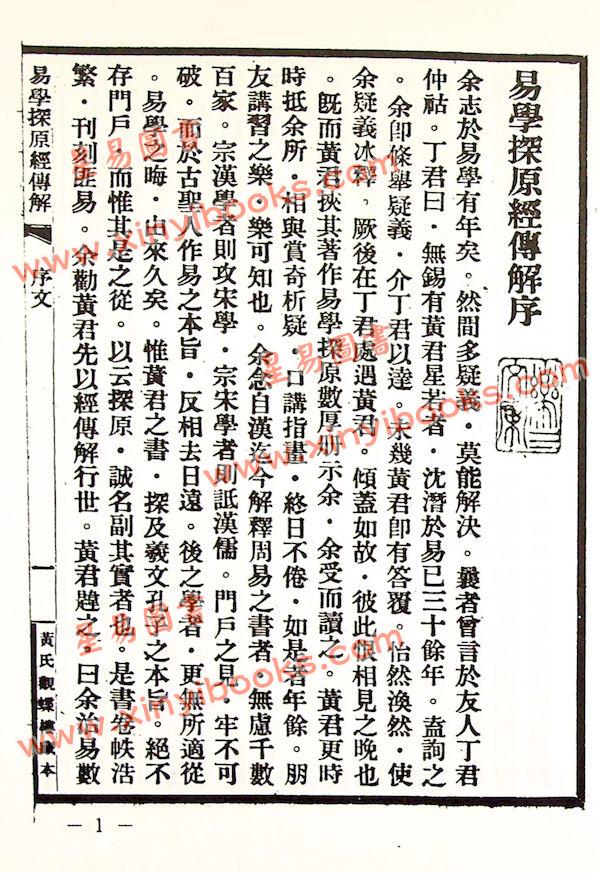 易學探原經傳解序
余志於易學有年矣。然間多疑義。莫能解決。曩者曾言於友人丁君
仲祜。丁君曰。無錫有黃君星若者。沈潛於易已三十餘年。盍詢之
。余卽條舉疑義。介丁君以達。未幾黃君卽有答覆。怡然渙然。使
余疑義冰釋。厥後在丁君處遇黃君。傾蓋如故。彼此恨相見之晚也
。旣而黃君挾其著作易學探原數厚册示余。余受而讀之。黃君更時
時抵余所。相與賞奇析疑。口講指畫。終日不倦。如是者年餘。朋
友講習之樂。樂可知也。余念自漢迄今解釋周易之書者。無慮千數
百家。宗漢學者則攻宋學。宗宋學者則詆漢儒。門戶之見。牢不可
破。而於古聖人作易之本旨。反相去日遠。後之學者。更無所適從
。易學之晦。由來久矣。惟黃君之書。探及羲文孔子之本旨。絕不
存門戶。而惟其是之從。以云探原。誠名副其實者也。是書卷帙浩
繁。刊刻匪易。余勸黃君先以經傳解行世。黃君韙之。曰余治易數
易學探原經傳解
序文
一
黃氏觀蝶樓藏本
— 1 —
星易圖書
www.xinyibooks.com
星易圖書
www.xinyibooks.com
星易圖書
www.xinyibooks.com